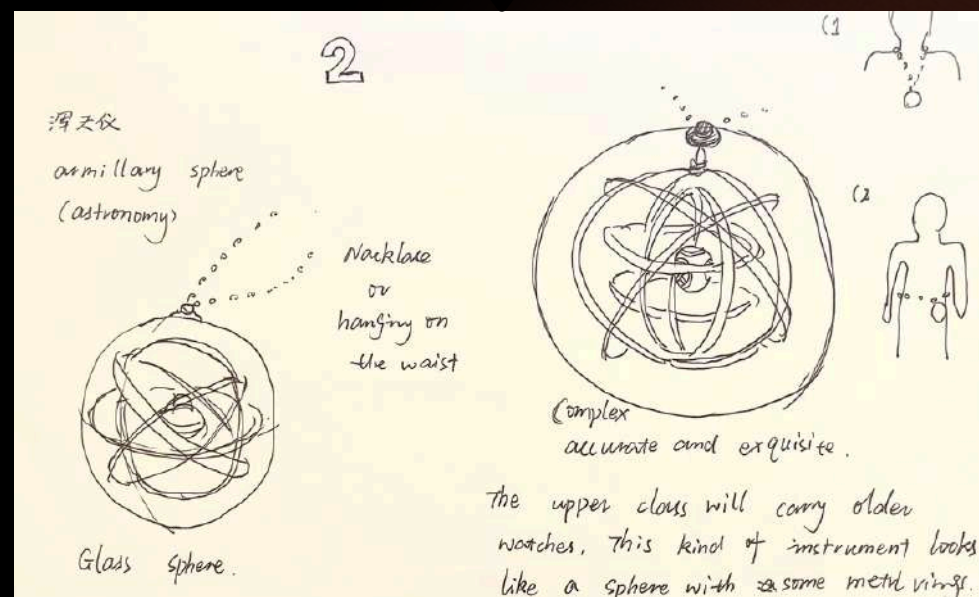 2
浑天仪
armillary sphere
(astronomy)
Nacklace
or
hanging on
the waist
Glass sphere.
(1
(2
Complex
accurate and exquisite.
The upper class will carry older
watches. This kind of instrument looks
like a sphere with some metal rings.